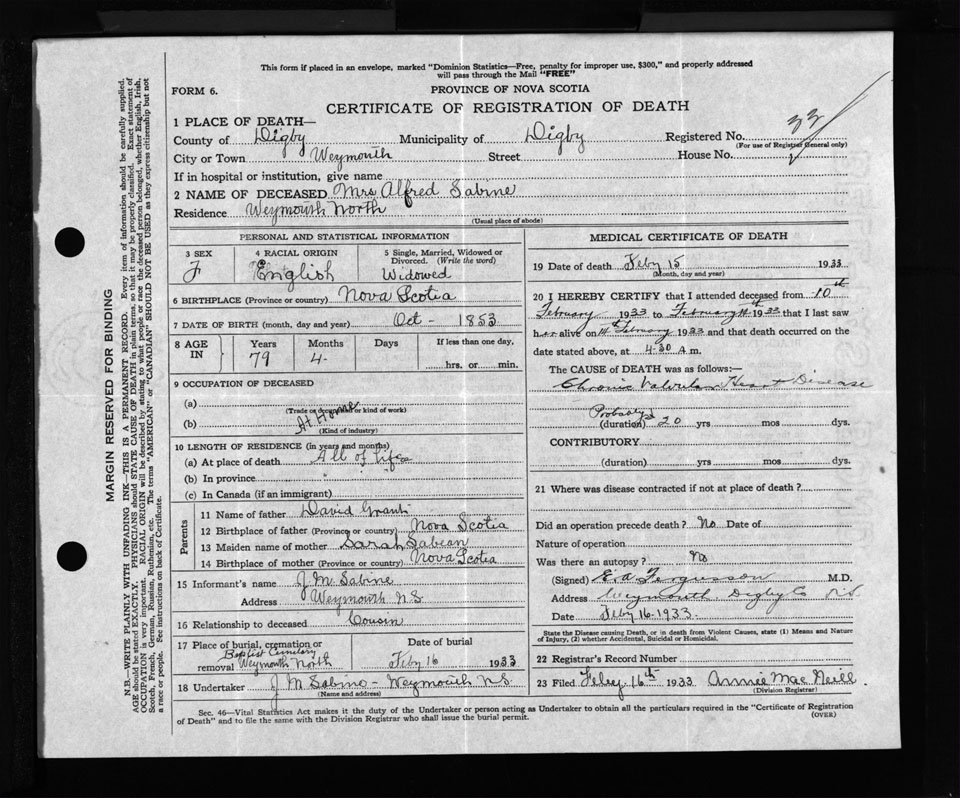 This form if placed in an envelope, marked "Dominion Statistics—Free, penalty for improper use, $300," and properly addressed
will pass through the Mail "FREE"
FORM 6.
PROVINCE OF NOVA SCOTIA
CERTIFICATE OF REGISTRATION OF DEATH
1 PLACE OF DEATH—
County of Digby Municipality of Digby Registered No. 33
(For use of Registrar General only)
City or Town Weymouth Street House No.
If in hospital or institution, give name
2 NAME OF DECEASED Mrs Alfred Sabine
Residence Weymouth North
(Usual place of abode)
PERSONAL AND STATISTICAL INFORMATION
3 SEX F
4 RACIAL ORIGIN English
5 Single, Married, Widowed or Divorced. (Write the word) Widowed
6 BIRTHPLACE (Province or country) Nova Scotia
7 DATE OF BIRTH (month, day and year) Oct - 1853
8 AGE IN Years 79 Months 4- Days If less than one day, hrs. or min.
9 OCCUPATION OF DECEASED
(a)
(Trade or occupation or kind of work)
(b) At Home
(Kind of industry)
10 LENGTH OF RESIDENCE (in years and months)
(a) At place of death All of Life
(b) In province "
(c) In Canada (if an immigrant)
Parents
11 Name of father David Grant
12 Birthplace of father (Province or country) Nova Scotia
13 Maiden name of mother Sarah Sabean
14 Birthplace of mother (Province or country) Nova Scotia
15 Informant's name J M Sabine
Address Weymouth N.S.
16 Relationship to deceased Cousin
17 Place of burial, cremation or removal Baptist Cemetery Weymouth North
Date of burial Feby 16 1933
18 Undertaker J M Sabine - Weymouth N.S.
(Name and address)
MEDICAL CERTIFICATE OF DEATH
19 Date of death Feby 15 1933
(Month, day and year)
20 I HEREBY CERTIFY that I attended deceased from 10th
February 1933 to February 14th 1933 that I last saw
her alive on 14th February 1933 and that death occurred on the
date stated above, at 4-30 A m.
The CAUSE of DEATH was as follows:—
Chronic Valvular Heart Disease
Probably
(duration) 20 yrs mos dys.
CONTRIBUTORY
(duration) yrs. mos. dys.
21 Where was disease contracted if not at place of death?
Did an operation precede death? No Date of
Nature of operation
Was there an autopsy? No
(Signed) Fergusson M.D.
Address Weymouth. Digby Co N.S.
Date Feby 16-1933.
State the Disease causing Death, or in death from Violent Causes, state (1) Means and Nature
of Injury, (2) whether Accidental, Suicidal or Homicidal.
22 Registrar's Record Number
23 Filed Feby. 16th 1933 Annie MacNeill
(Division Registrar)
Sec. 46—Vital Statistics Act makes it the duty of the Undertaker or person acting as Undertaker to obtain all the particulars required in the "Certificate of Registration
of Death" and to file the same with the Division Registrar who shall issue the burial permit.
(OVER)
MARGIN RESERVED FOR BINDING
N.B.—WRITE PLAINLY WITH UNFADING INK—THIS IS A PERMANENT RECORD. Every item of information should be carefully supplied.
AGE should be stated EXACTLY. PHYSICIANS should STATE CAUSE OF DEATH in plain terms, so that it may be properly classified. Exact statement of
OCCUPATION is very important. RACIAL ORIGIN will be described by stating to what people or race the deceased person belonged, whether English, Irish,
Scotch, French, German, Russian, Ruthenian, etc. The terms "AMERICAN" or "CANADIAN" SHOULD NOT BE USED as they express citizenship but not
a race or people. See instructions on back of Certificate.